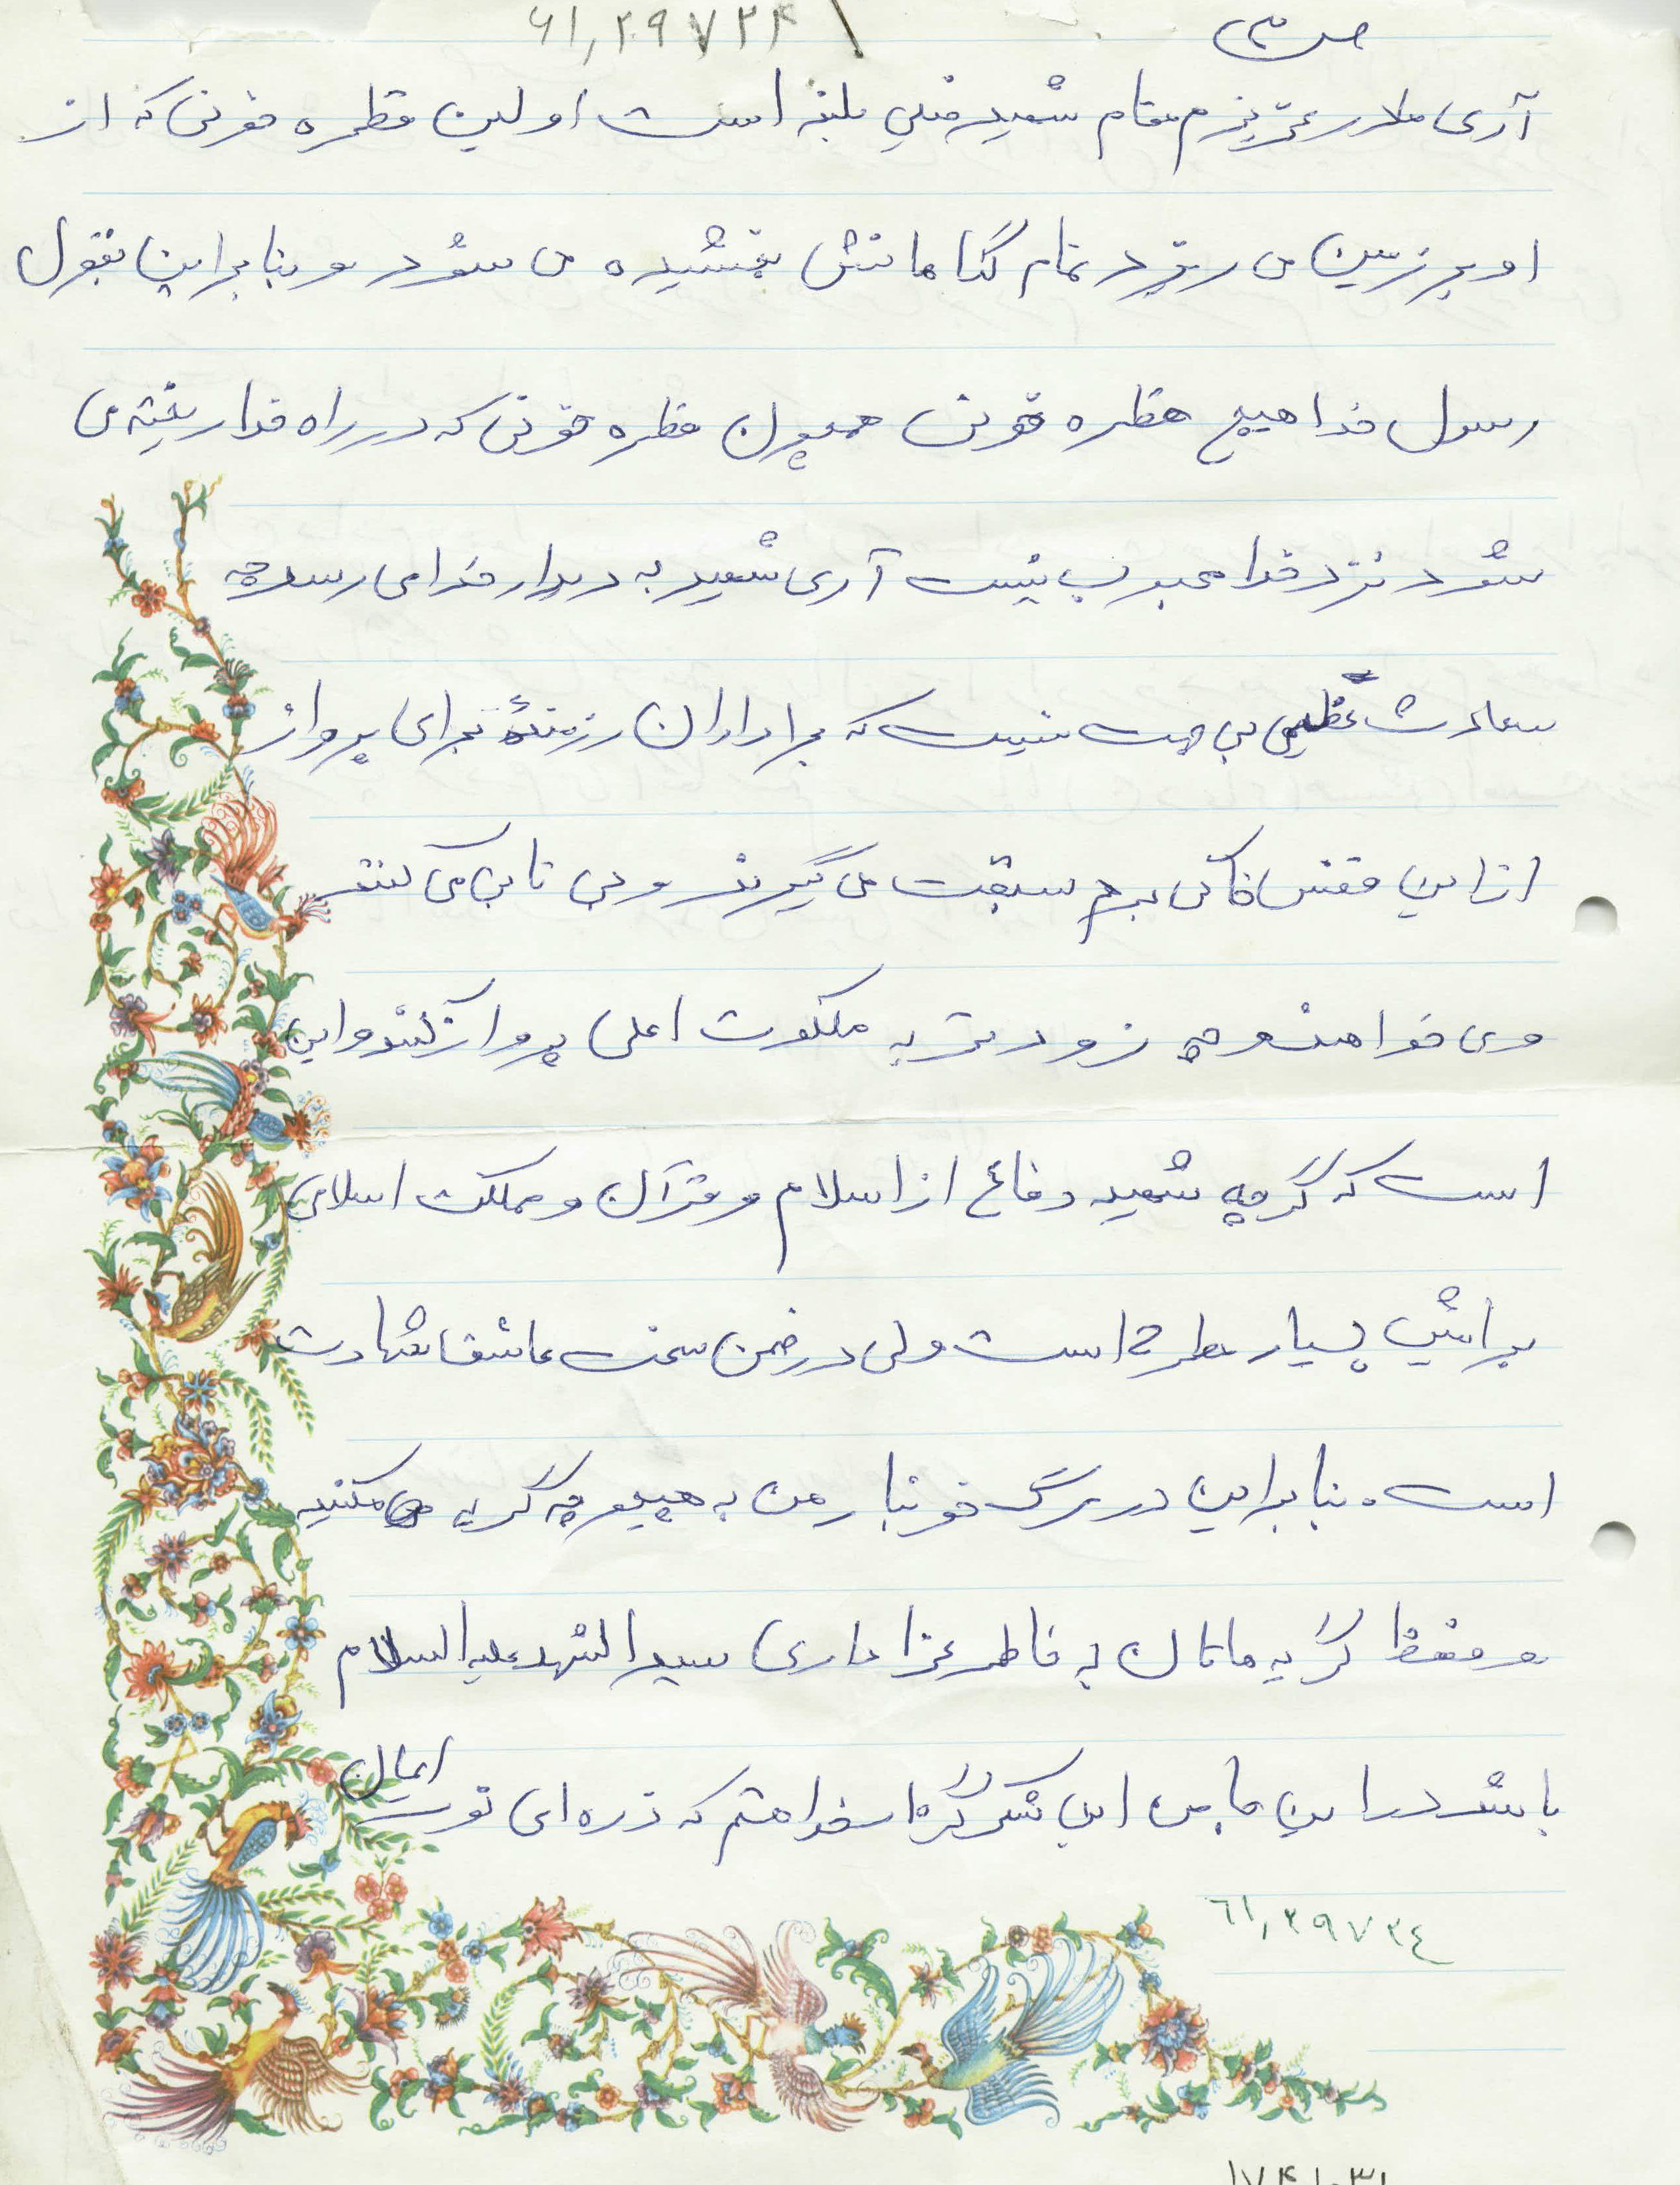 ص ۳
۶۱,۲۹۷۲۴
آری مادر عزیزم مقام شهید خیلی بلند است اولین قطره خونی که از
او بر زمین می ریزد تمام گناهانش بخشیده می شود و بنابراین بقول
رسول خدا هیچ قطره خونی همچون قطره خونی که در راه خدا ریخته می
شود نزد خدا محبوب نیست آری شهید به دیدار خدا می رسد چه
سعادت عظیمی بی جهت نیست که برادران رزمنده برای پرواز
از این قفس خاکی بر هم سبقت می گیرند و بی تابی می کنند
و می خواهند هر چه زودتر به ملکوت اعلی پرواز کنند و این
است که گرچه شهید دفاع از اسلام و قرآن و مملکت اسلامی
برایش بسیار مطرح است ولی در ضمن سخت عاشق شهادت
است. بنابراین در مرگ خونبار من به هیچوجه گریه مکنید
و فقط گریه هاتان به خاطر عزاداری سید الشهدا علیه السلام
باشد در این مابین این تذکر را خواهم که ذره ای نور ایمان
٦١,٢٩٧٢٤
۱۷۴۱۰۳۱